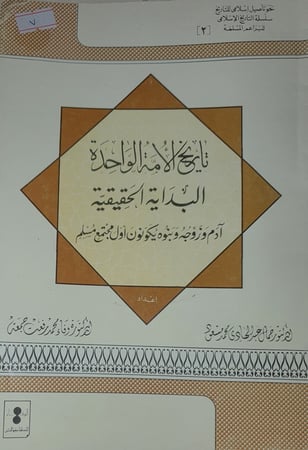 نحو تأصيل إسلامي للتاريخ
سلسلة التاريخ الإسلامي
للبراعم المسلمة
[٢]
٧
تاريخ الأمة الواحدة
البداية الحقيقية
آدم وزوجه وبنوه يكونون أول مجتمع مسلم
إعداد
الدكتور جمال عبد الهادي محمد مسعود
الدكتورة وفاء محمد رفعت جمعة